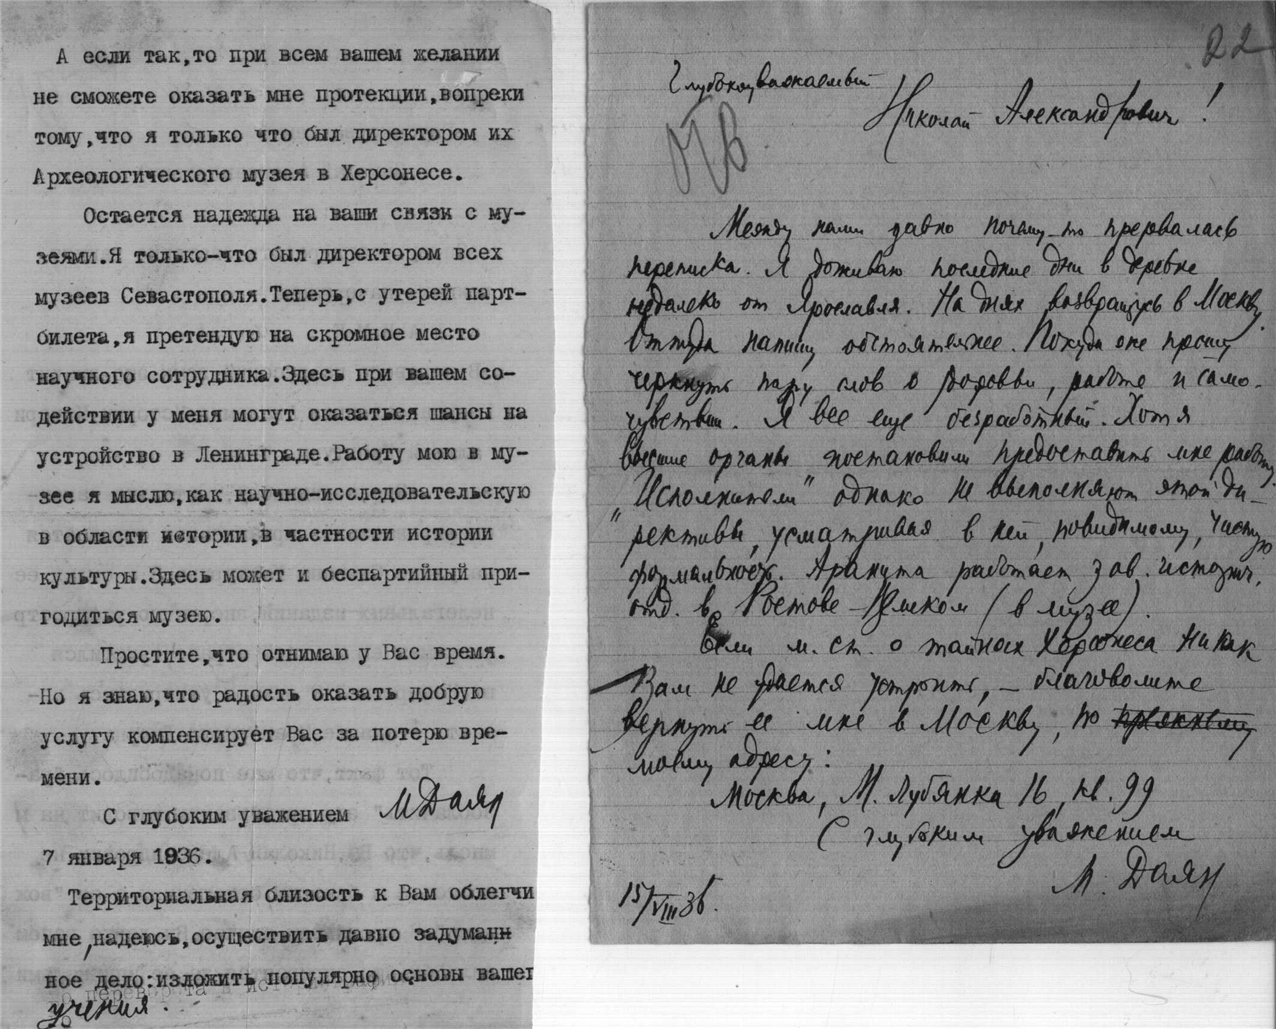 А если так,то при всем вашем желании
не сможете оказать мне протекции,вопреки
тому,что я только что был директором их
Археологического музея в Херсонесе.
Остается надежда на ваши связи с му-
зеями.Я только-что был директором всех
музеев Севастополя.Теперь,с утерей парт-
билета,я претендую на скромное место
научного сотрудника.Здесь при вашем со-
действии у меня могут оказаться шансы на
устройство в Ленинграде.Работу мою в му-
зее я мыслю,как научно-исследовательскую
в области истории,в частности истории
культуры.Здесь может и беспартийный при-
годиться музею.
Простите,что отнимаю у Вас время.
Но я знаю,что радость оказать добрую
услугу компенсирует Вас за потерю вре-
мени.
С глубоким уважением МДаян
7 января 1936.
Территориальная близость к Вам облегчи
мне,надеюсь,осуществить давно задуман
ное дело:изложить популярно основы вашег
учения.
22
Глубокоуважаемый
Николай Александрович!
ОТВ
Между нами давно почему-то прервалась
переписка. Я доживаю последние дни в деревне
недалеко от Ярославля. На днях возвращусь в Москву
Оттуда напишу обстоятельнее. Покуда же прошу
черкнуть пару слов о здоровьи, работе и само-
чувствии. Я все еще безработный. Хотя
высшие органы постановили предоставить мне работу,
"Исполнители" однако не выполняют этой ди-
рективы, усматривая в ней, повидимому, чистую
формальность. Аракута работает зав. историч.
отд. в Ростове (в музее).
Если м. ст. о тайнах Херсонеса никак
Вам не удается устроить, – благоволите
вернуть ее мне в Москву, по
моему адресу:
Москва, М. Лубянка 16, кв. 99
С глубоким уважением
М. Даян
15/VIII 36.